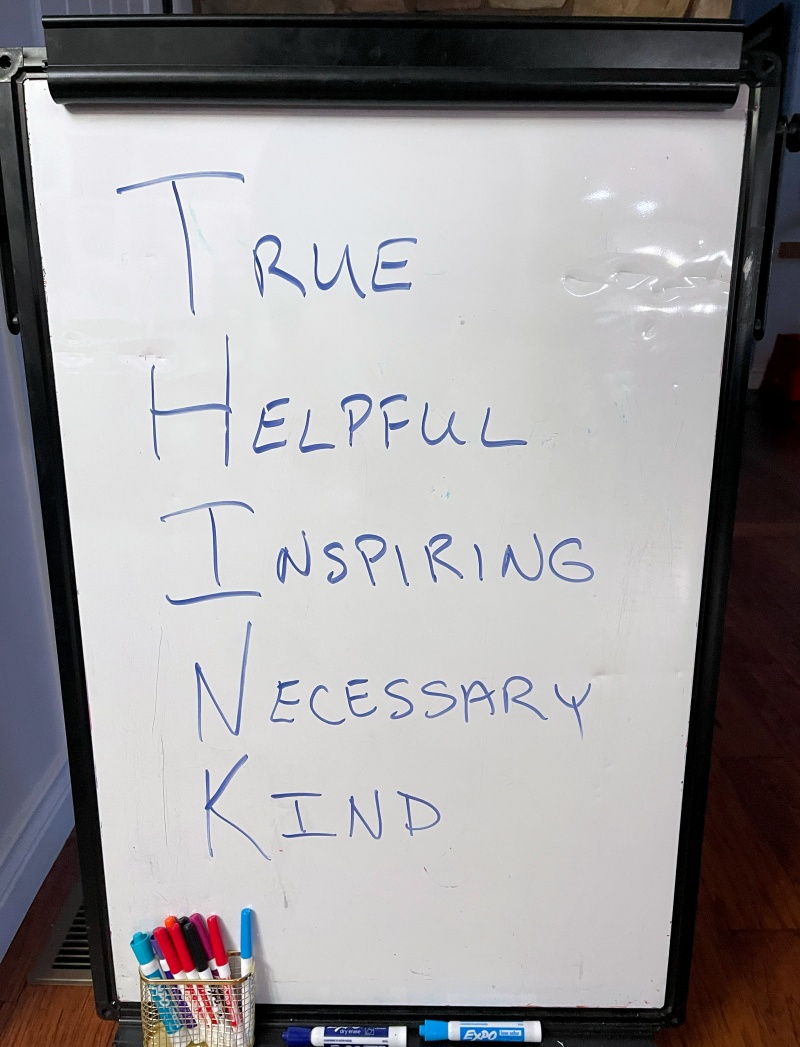 TRUE
HELPFUL
INSPIRING
NECESSARY
KIND
dry erase
EXPO